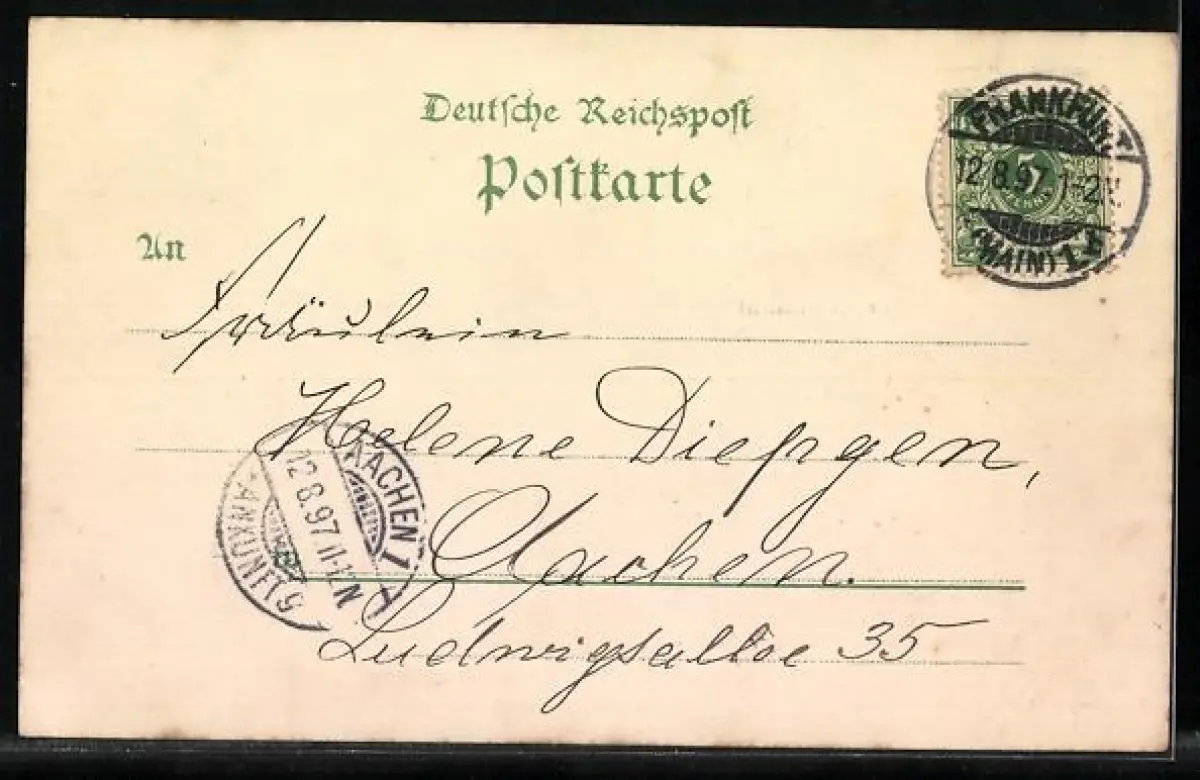 Deutsche Reichspost
Postkarte
FRANKFURT
12.8.97. 1-2N.
(MAIN) 1.
5
An
Fräulein
Helene Diepgen,
Aachen.
Ludwigsallee 35
AACHEN 1
12.8.97. 11-12N
ANKUNFT 5
in